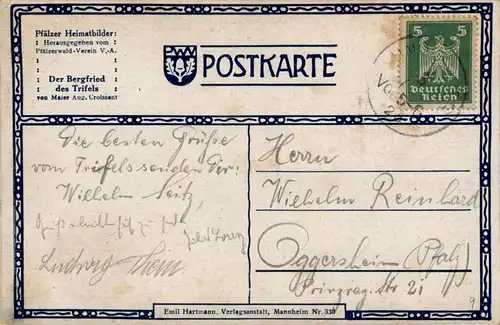 Pfälzer Heimatbilder:
Herausgegeben vom
Pfälzerwald-Verein V.-A.
Der Bergfried
des Trifels
von Maler Aug. Croissant
PWV
POSTKARTE
5 5
Deutsches
Reich
Die besten Grüße
vom Trifels senden Dir:
Wilhelm Seitz,
Ludwig Thom
Herrn
Wilhelm Reinhard
Oggersheim (Pfalz)
Prinzreg. Str. 21
Emil Hartmann, Verlagsanstalt, Mannheim Nr. 330